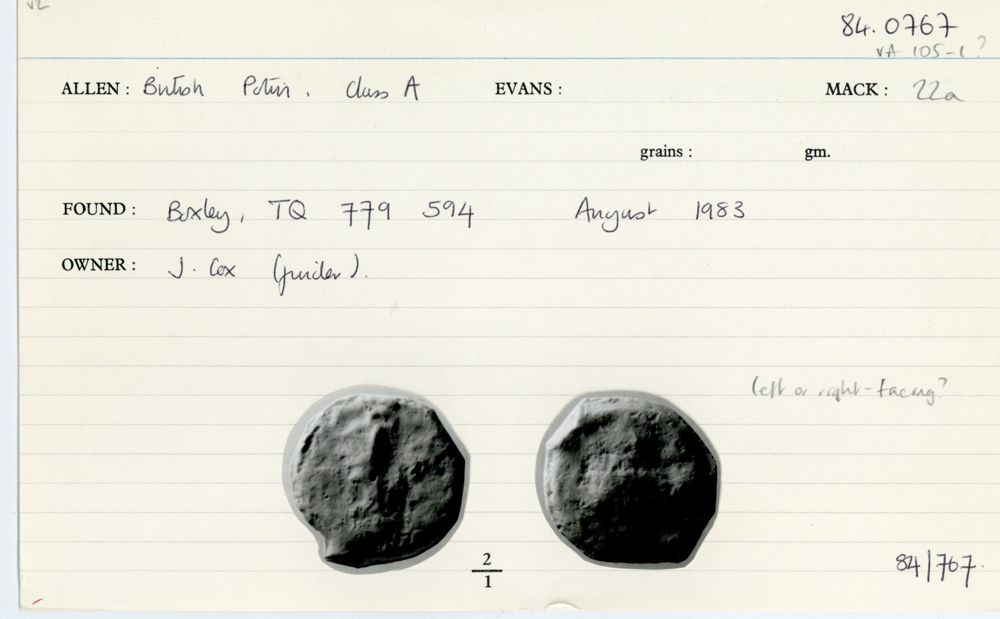 84.0767
VA 105-1?
ALLEN: British Potin. Class A EVANS: MACK: 22a
grains: gm.
FOUND: Boxley, TQ 779 594 August 1983
OWNER: J. Cox (finder).
left or right-facing?
2
1
84/767.